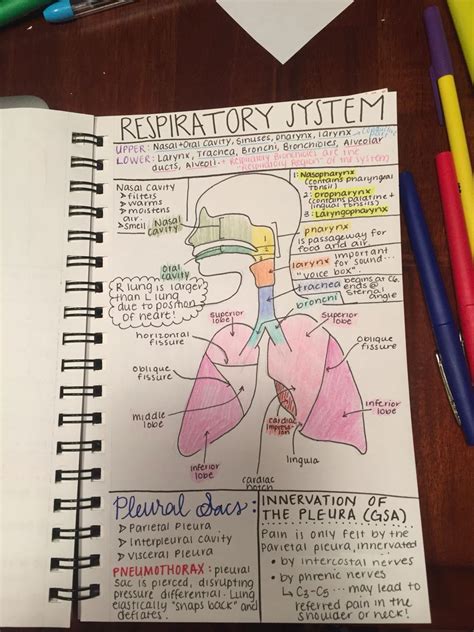 RESPIRATORY SYSTEM
UPPER: Nasal + Oral Cavity, Sinuses, pharynx, larynx
LOWER: Larynx, Trachea, Bronchi, Bronchioles, Alveolar
ducts, Alveoli * Respiratory Bronchioles are the
"Respiratory Region" of the system
Nasal Cavity
> filters
> warms
> moistens
air
> smell
Nasal
cavity
Oral
cavity
R lung is larger
than L lung
due to position
of heart!
1: Nasopharynx
(contains pharyngeal
tonsil)
2: Oropharynx
(contains palatine +
lingual tonsils)
3: Laryngopharynx
1
2
3
pharynx
is passageway for
food and air
larynx important
for sound...
"voice box"
trachea begins at C6,
ends @
sternal
angle
bronchi
superior
lobe
superior
lobe
horizontal
fissure
oblique
fissure
oblique
fissure
middle
lobe
inferior
lobe
cardiac
impression
inferior
lobe
lingula
cardiac
notch
Pleural Sacs:
> Parietal Pleura
> Interpleural cavity
> Visceral Pleura
PNEUMOTHORAX: pleural
sac is pierced, disrupting
pressure differential. Lung
elastically "snaps back" and
deflates.
INNERVATION OF
THE PLEURA (GSA)
Pain is only felt by the
Parietal pleura, innervated
• by intercostal nerves
• by phrenic nerves
↳ C3-C5... may lead to
referred pain in the
shoulder or neck!